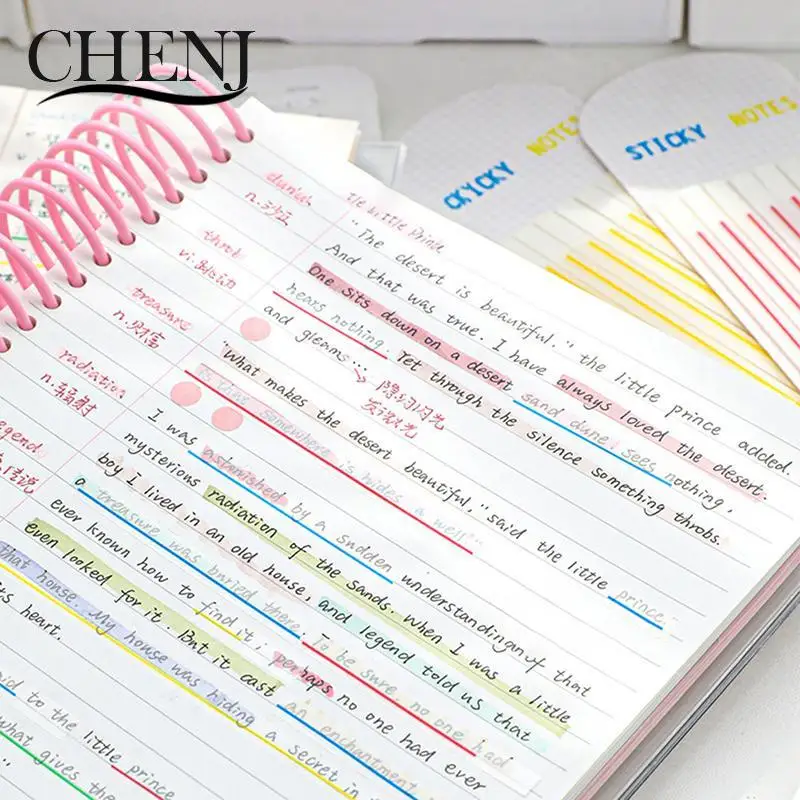 CHENJ
STICKY NOTES
CKYCKY NOTES
The Little Prince
"The desert is beautiful." the little prince added.
And that was true. I have always loved the desert.
One sits down on a desert sand dune, sees nothing,
hears nothing. Yet through the silence something throbs.
and gleams...
"What makes the desert beautiful," said the little prince.
is that somewhere is hides a well"
I was astonished by a sudden understandingan of that
mysterious radiation of the sands. When I was a little
boy I lived in an old house, and legend told us that
a treasure was buried there. To be sure, no one had
ever known how to find it; perhaps no one had ever
even looked for it. But it cast an enchantment
that house. My house was hiding a secret in
its heart.
said to the little prince
what gives the
throb
vi.
treasure
n.财富
radiation
n.辐射
legend
n.沙丘